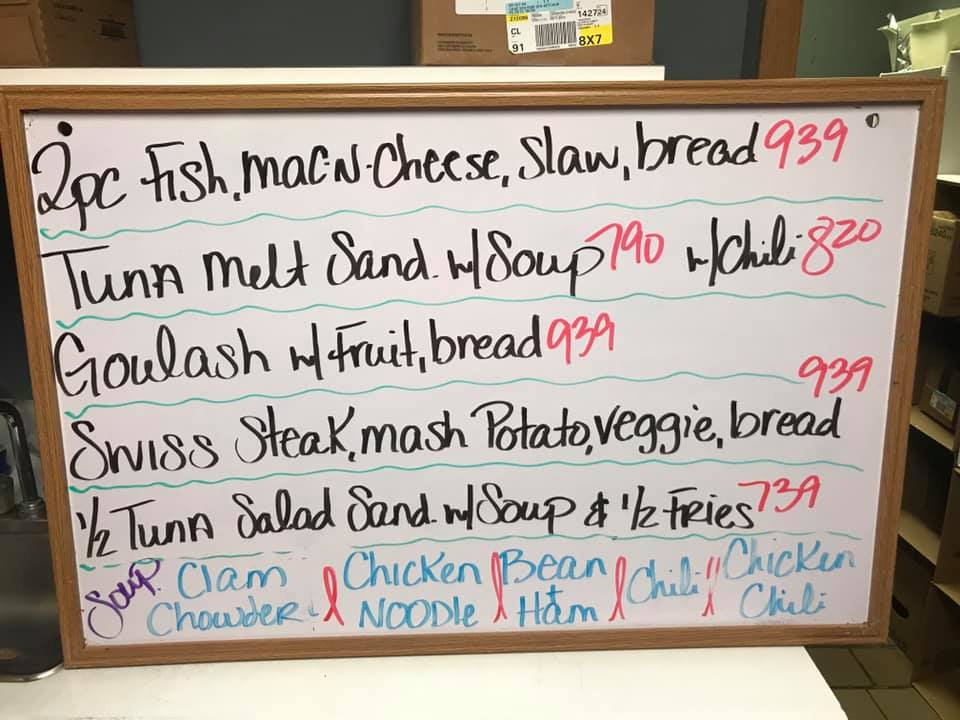 142724
CL
91
8X7
2pc Fish, Mac-N-Cheese, Slaw, bread 939
Tuna Melt Sand. w/Soup 790 w/Chili 820
Goulash w/Fruit, bread 939
939
Swiss Steak, mash Potato, veggie, bread
1/2 Tuna Salad Sand. w/Soup & 1/2 Fries 739
Soup: Clam Chowder
Chicken NOODLE
Bean + Ham
Chili
Chicken Chili